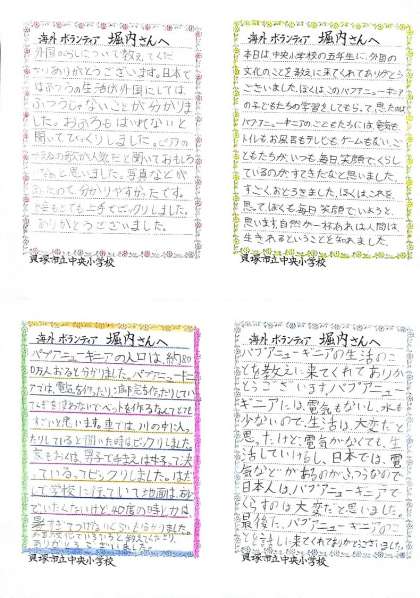 海外ボランティア 堀内さんへ
外国のくらしについて教えてくだ
さりありがとうございます。日本で
はふつうの生活が外国にしては、
ふつうじゃないことが分かりま
した。おふろもはいれないと
聞いてびっくりしました。
が人気だと聞いておもしろ
いと思いました。写真など
あったので分かりやすかったです。
とても上手でビックリしました。
ありがとうございました。
貝塚市立中央小学校
海外ボランティア 堀内さんへ
本日は中央小学校の五年生に、外国の
文化のことを教えに来てくれてありがとう
ございました。ぼくはこのパプアニューギニア
の子どもたちの学習をしてもらって、思ったのは
パプアニューギニアのこどもたちには、電気も
トイレもお風呂もテレビもゲームもない、こ
どもたちが、いつも、毎日、笑顔でくらし
ているのがすてきだなと思いました。
すごくおどろきました。ぼくは、これを
思って、ぼくも毎日笑顔でいようと、
思います。自然が一杯あれば人間は
生きれるということを知れました。
貝塚市立中央小学校
海外ボランティア 堀内さんへ
パプアニューギニアの人口は、約80
0万人おると分かりました。パプアニューギニ
アでは、電気を作ったり
ベットを作るなんてとても
すごいと思います。車では、川の中に入っ
たりしていると聞いた時はビックリしました。
ってビックリしました。はだ
しで学校に行っていて地面は、
いたくないけど40度の時
暑すぎて
貝塚市立中央小学校
海外ボランティア 堀内さんへ
パプアニューギニアの生活のこ
とを教えに来てくれてありが
とうございます。パプアニュー
ギニアには、電気もないし、水も
少ないので、生活は大変だと
思った。けど、電気がなくても、生
活していけるし、日本では、電
気などがあるのがふつうなので
日本人は、パプアニューギニアで
くらすのは大変だと思いました。
最後に、パプアニューギニアのこ
とを話しに来てくれてありがとうございました。
貝塚市立中央小学校